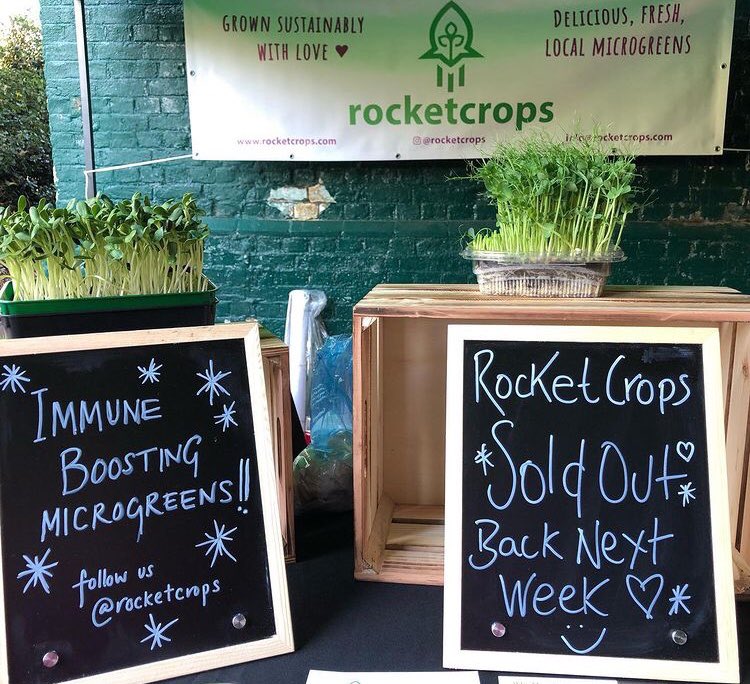 GROWN SUSTAINABLY
WITH LOVE ♥
DELICIOUS, FRESH,
LOCAL MICROGREENS
rocketcrops
www.rocketcrops.com
@rocketcrops
info@rocketcrops.com
IMMUNE
BOOSTING
MICROGREENS!!
follow us
@rocketcrops
RocKet Crops
Sold Out
Back Next
Week